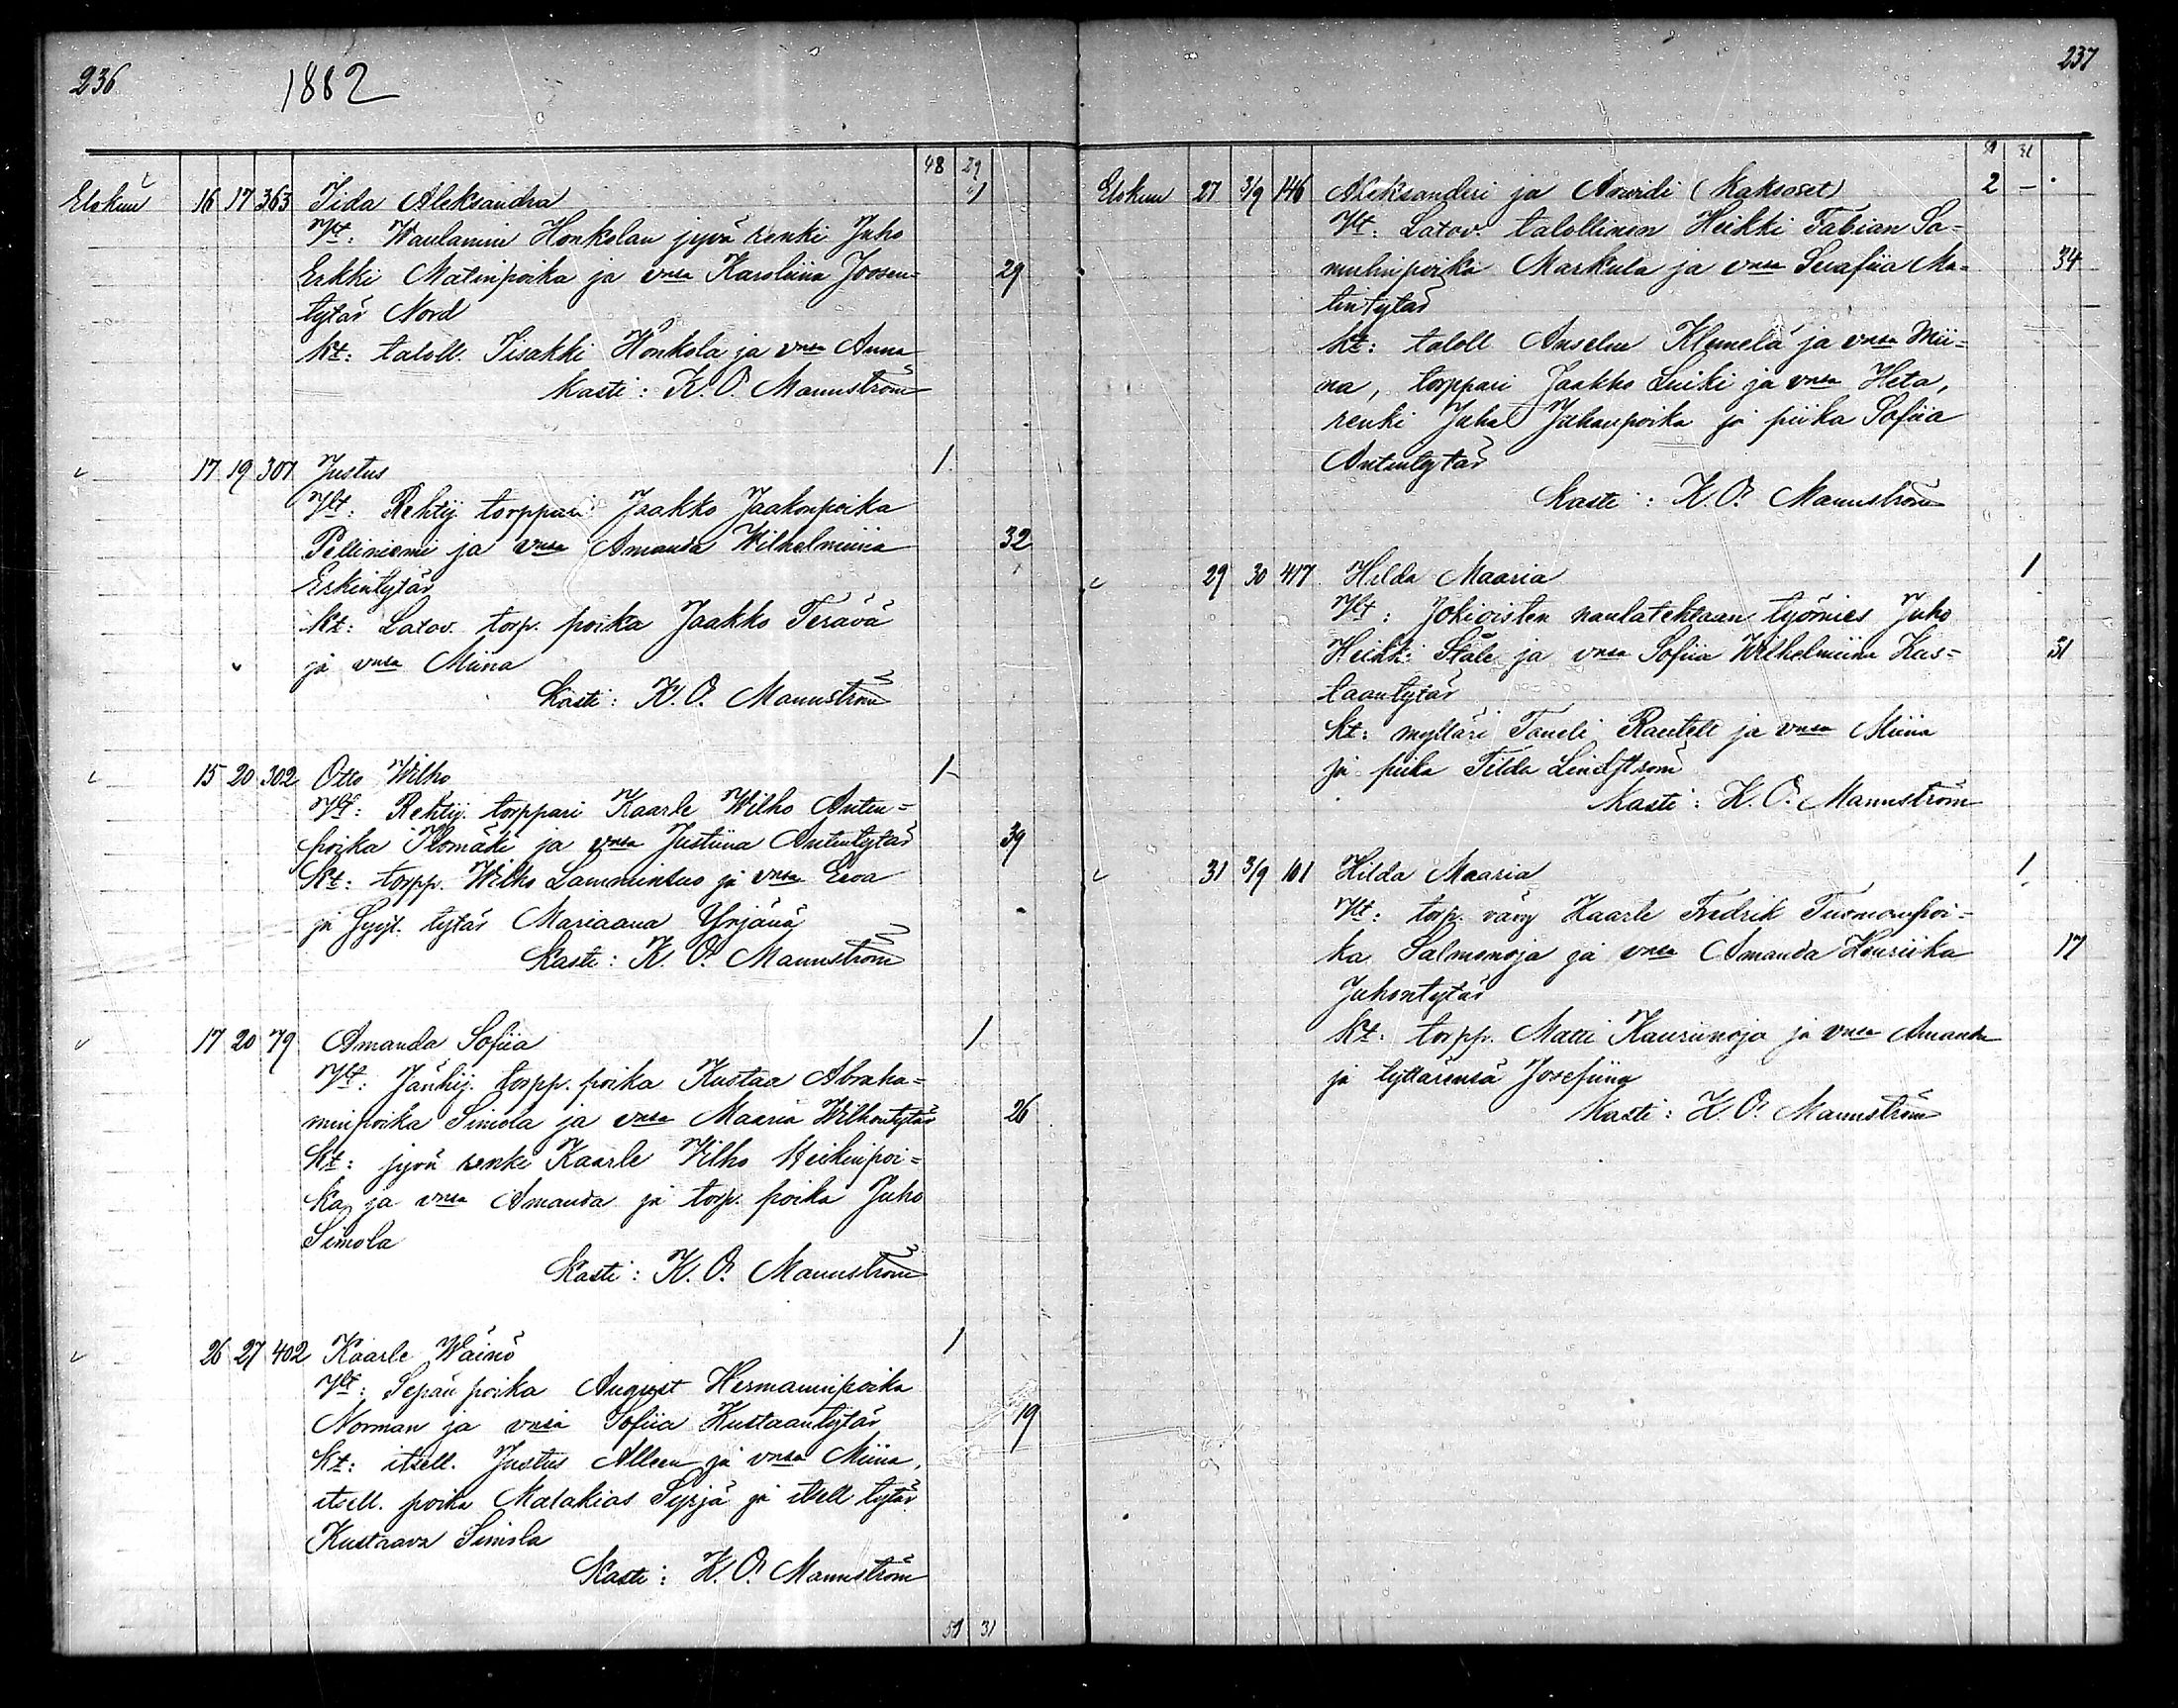 236
1882
48 29
Elokuu 16 17 363 Iida Aleksandra 1
Vt: Waulammi Honkolan jyvä renki Juho
Erkki Matinpoika ja vnsa Karoliina Joosen= 29
tytär Nord
Kt: taloll. Iisakki Honkola ja vnsa Anna
Kasti: K. O. Mannström
17 19 307 Justus 1
Vt: Rehtij. torppari Jaakko Jaakonpoika
Pelliniemi ja vnsa Amanda Wilhelmiina 32
Erkintytär
Kt: Latov. torp. poika Jaakko Terävä
ja vnsa Miina
Kasti: K. O. Mannström
15 20 302 Otto Wilho 1
Vt: Rehtij. torppari Kaarle Wilho Antin=
poika Ilomäki ja vnsa Justiina Antintytär 39
Kt: torpp. Wilho Lamminsuo ja vnsa Eeva
ja tytär Mariaana Yrjänä
Kasti: K. O. Mannström
17 20 79 Amanda Sofiia 1
Vt: Jänhij. torpp. poika Kustaa Abraha=
minpoika Simola ja vnsa Maaria Wilhontytär 26
Kt: jyvä renki Kaarle Wilho Heikinpoi=
ka ja vnsa Amanda ja torp. poika Juho
Simola
Kasti: K. O. Mannström
26 27 402 Kaarle Wäinö 1
Vt: Sepän poika August Hermanninpoika
Norman ja vnsa Sofiia Kustaantytär 19
Kt: itsell. Justus Alleen ja vnsa Miina,
itsell. poika Malakias Syrjä ja itsell tytär
Kustaava Simola
Kasti: K. O. Mannström
51 31
237
51 31
Elokuu 27 3/9 146 Aleksanderi ja Arvidi (Kaksoset) 2 -
Vt: Latov. talollinen Heikki Fabian Sa=
muelinpoika Markula ja vnsa Serafiia Ma= 34
tintytär
Kt: taloll Anselm Klemelä ja vnsa Mii=
na, torppari Jaakko Luiki ja vnsa Heta,
renki Juha Juhanpoika ja piika Sofiia
Antintytär
Kasti: K. O. Mannström
29 30 417 Hilda Maaria 1
Vt: Jokioisten naulatehtaan työmies Juho
Heikki Ståle ja vnsa Sofiia Wilhelmiina Kus= 31
taantytär
Kt: mylläri Taneli Rantell ja vnsa Miina
ja piika Tilda Lindström
Kasti: K. O. Mannström
31 3/9 101 Hilda Maaria 1
Vt: torp. vävy Kaarle Fredrik Tuomanpoi=
ka Salmenoja ja vnsa Amanda Henriika 17
Juhontytär
Kt: torpp. Matti Kaurinoja ja vnsa Amanda
ja tyttärensä Josefiina
Kasti: K. O. Mannström